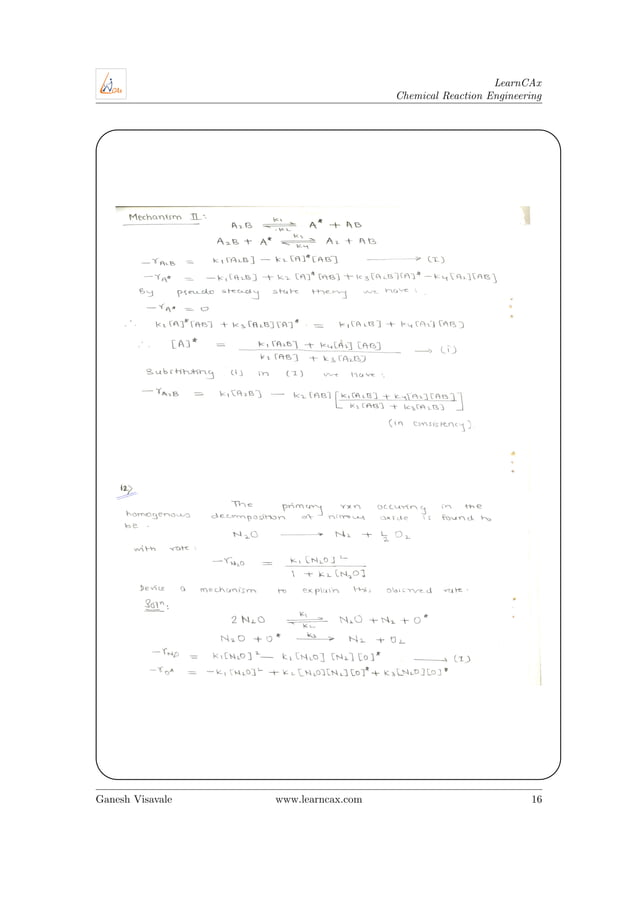 LearnCAx
Chemical Reaction Engineering
Mechanism II:
A₂B ⇌ A* + AB (k₁, k₂)
A₂B + A* ⇌ A₂ + AB (k₃, k₄)
−r_A₂B = k₁[A₂B] − k₂[A]*[AB] ⟶ (I)
−r_A* = −k₁[A₂B] + k₂[A]*[AB] + k₃[A₂B][A]* − k₄[A₂][AB]
By pseudo steady state theory we have:
−r_A* = 0
∴ k₂[A]*[AB] + k₃[A₂B][A]* = k₁[A₂B] + k₄[A₂][AB]
∴ [A]* = (k₁[A₂B] + k₄[A₂][AB]) / (k₂[AB] + k₃[A₂B]) ⟶ (i)
Substituting (i) in (I) we have:
−r_A₂B = k₁[A₂B] − k₂[AB] [(k₁[A₂B] + k₄[A₂][AB]) / (k₂[AB] + k₃[A₂B])]
(in consistency)
12>
The primary rxn occuring in the
homogenous decomposition of nitrous oxide is found to
be.
N₂O ⟶ N₂ + ½ O₂
with rate:
−r_N₂O = k₁[N₂O]² / (1 + k₂[N₂O])
Device a mechanism to explain this observed rate.
Solⁿ:
2 N₂O ⇌ N₂O + N₂ + O* (k₁, k₂)
N₂O + O* ⟶ N₂ + O₂ (k₃)
−r_N₂O = k₁[N₂O]² − k₁[N₂O][N₂][O]* ⟶ (I)
−r_O* = −k₁[N₂O]² + k₂[N₂O][N₂][O]* + k₃[N₂O][O]*
Ganesh Visavale www.learncax.com 16